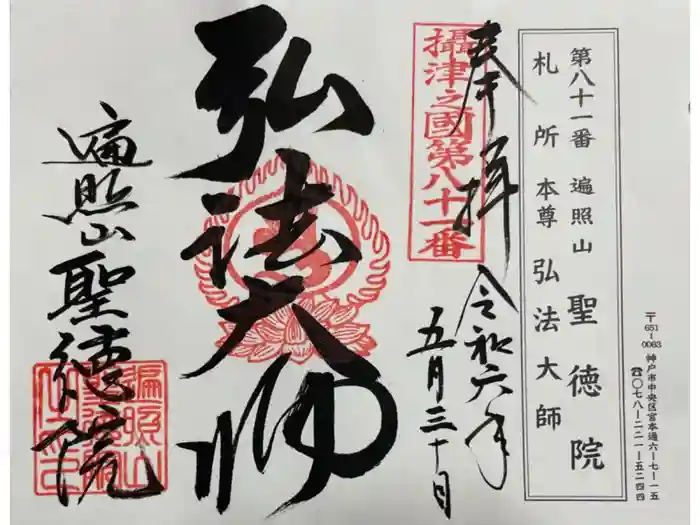 〒651-0063 神戸市中央区宮本通六-七-一五
☎〇七八-二二一-五二四四
第八十一番 遍照山 聖徳院
札所 本尊 弘法大師
奉拝
攝津之國第八十一番
令和六年
五月三十日
弘法大師
遍照山
聖徳院